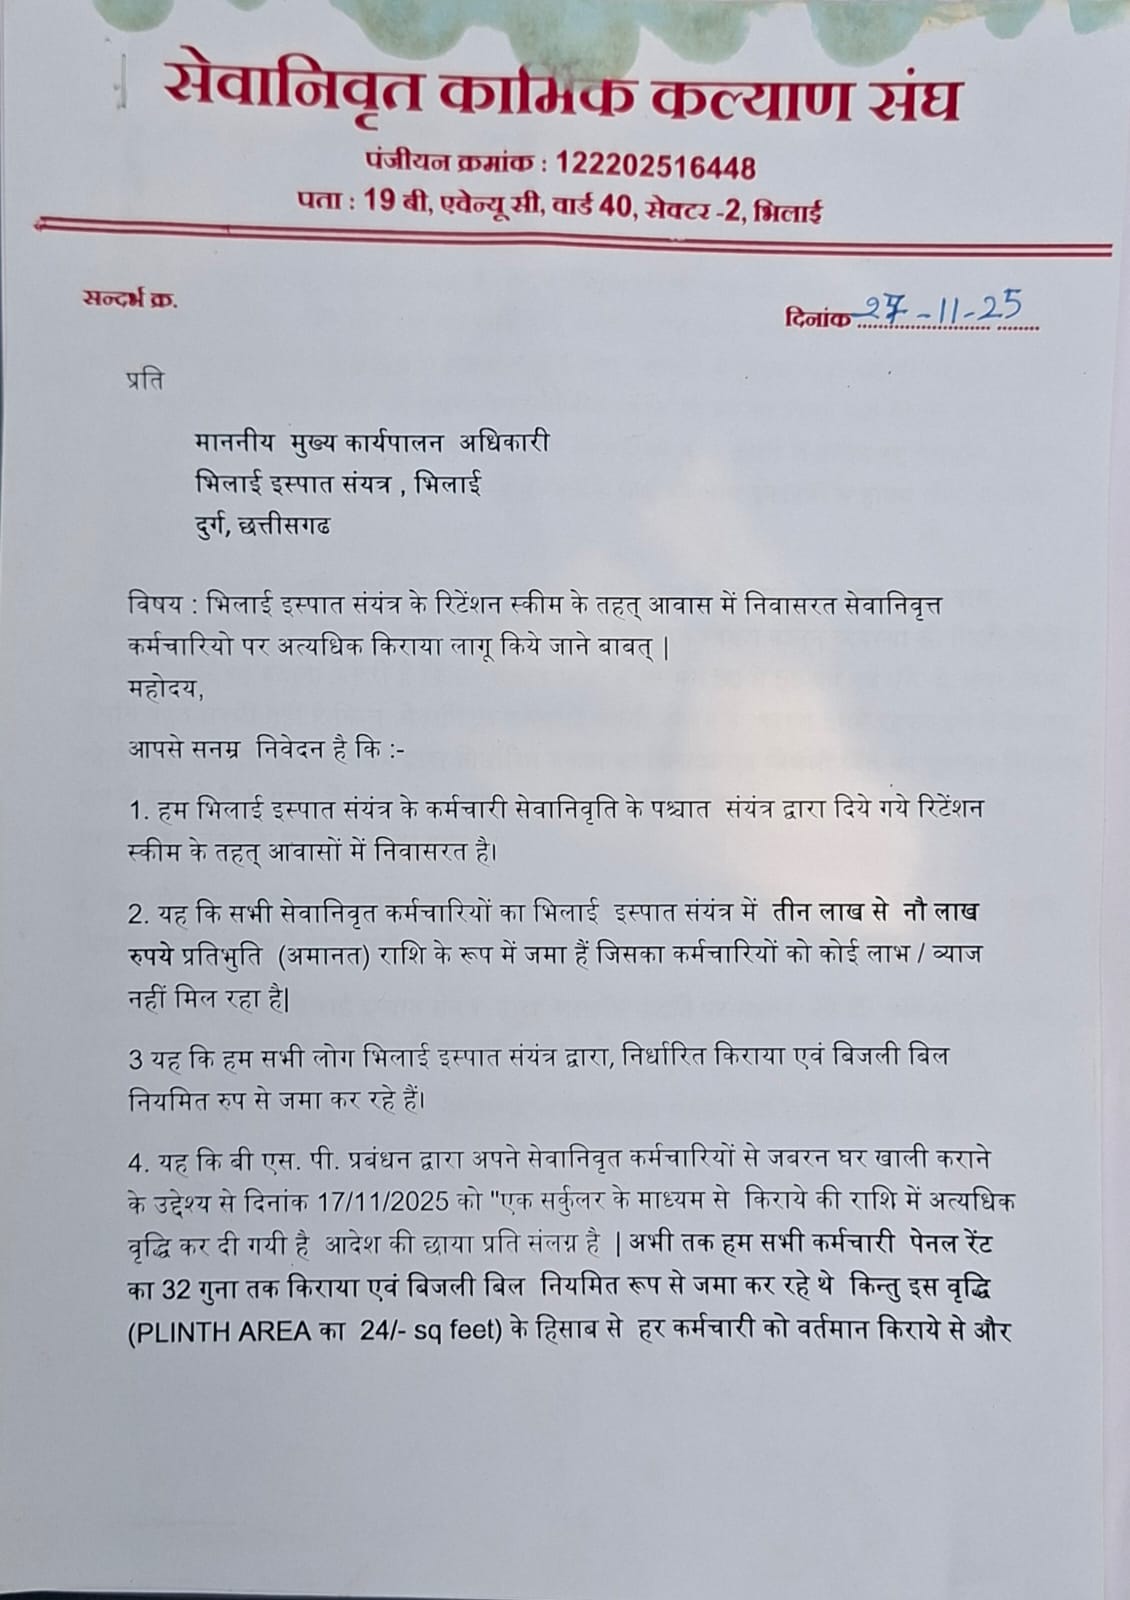 सेवानिवृत कार्मिक कल्याण संघ
पंजीयन क्रमांक : 122202516448
पता : 19 बी, एवेन्यू सी, वार्ड 40, सेक्टर -2, भिलाई
सन्दर्भ क्र.
दिनांक 27-11-25
प्रति
माननीय मुख्य कार्यपालन अधिकारी
भिलाई इस्पात संयत्र , भिलाई
दुर्ग, छत्तीसगढ
विषय : भिलाई इस्पात संयंत्र के रिटेंशन स्कीम के तहत् आवास में निवासरत सेवानिवृत्त
कर्मचारियो पर अत्यधिक किराया लागू किये जाने बाबत् |
महोदय,
आपसे सनम्र निवेदन है कि :-
1. हम भिलाई इस्पात संयंत्र के कर्मचारी सेवानिवृति के पश्चात संयंत्र द्वारा दिये गये रिटेंशन
स्कीम के तहत् आवासों में निवासरत है।
2. यह कि सभी सेवानिवृत कर्मचारियों का भिलाई इस्पात संयंत्र में तीन लाख से नौ लाख
रुपये प्रतिभुति (अमानत) राशि के रूप में जमा हैं जिसका कर्मचारियों को कोई लाभ / व्याज
नहीं मिल रहा है|
3 यह कि हम सभी लोग भिलाई इस्पात संयंत्र द्वारा, निर्धारित किराया एवं बिजली बिल
नियमित रुप से जमा कर रहे हैं।
4. यह कि बी एस. पी. प्रबंधन द्वारा अपने सेवानिवृत कर्मचारियों से जबरन घर खाली कराने
के उद्देश्य से दिनांक 17/11/2025 को "एक सर्कुलर के माध्यम से किराये की राशि में अत्यधिक
वृद्धि कर दी गयी है आदेश की छाया प्रति संलग्न है | अभी तक हम सभी कर्मचारी पेनल रेंट
का 32 गुना तक किराया एवं बिजली बिल नियमित रूप से जमा कर रहे थे किन्तु इस वृद्धि
(PLINTH AREA का 24/- sq feet) के हिसाब से हर कर्मचारी को वर्तमान किराये से और